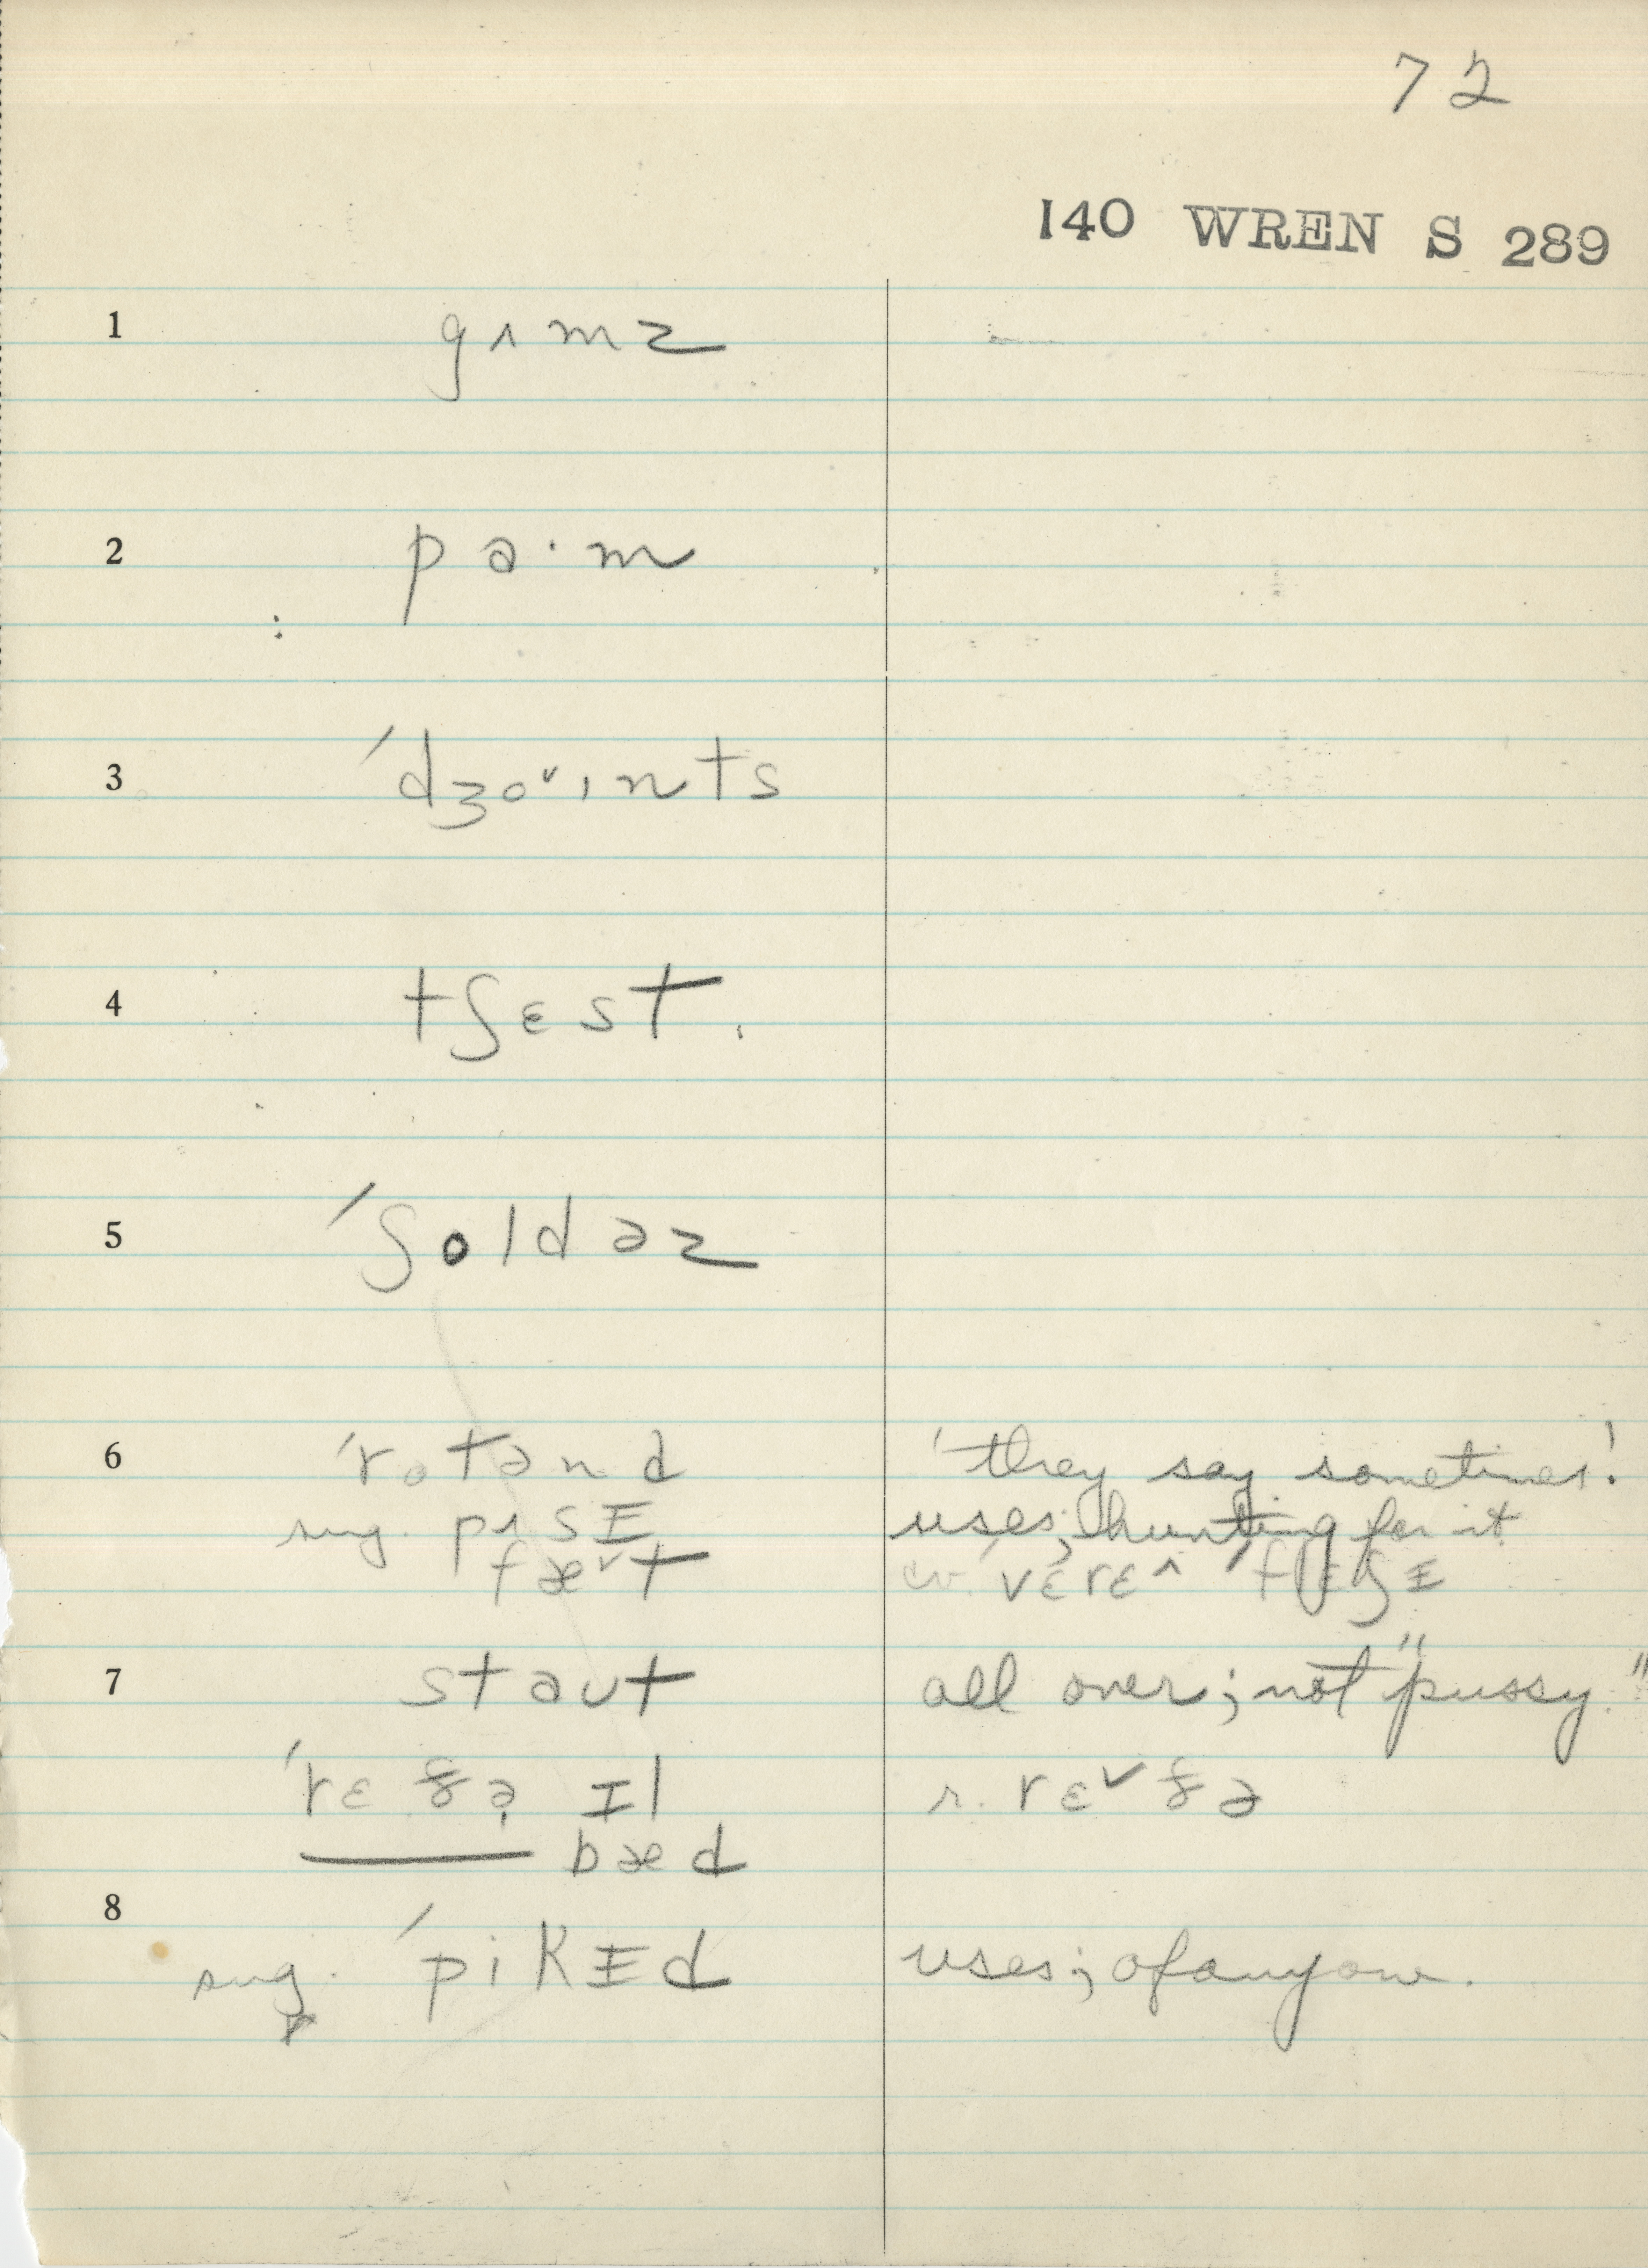 72
140 WREN S 289
1 gʌmz
2 pa·m
3 ′dʒoˇɩnts
4 tʃɛst
5 ′ʃoldəz
6 ′rotənd 'they say sometimes'.
sug. pʌsɪ uses; hunting for it
fæˇt cv. ′vɛrɛ^ ′flɛʃɪ
7 staut all over; not "pussy."
′rɛgə ɪl r. rɛˇgə
bæd
8
sug. ′pikɪd uses; of anyone.